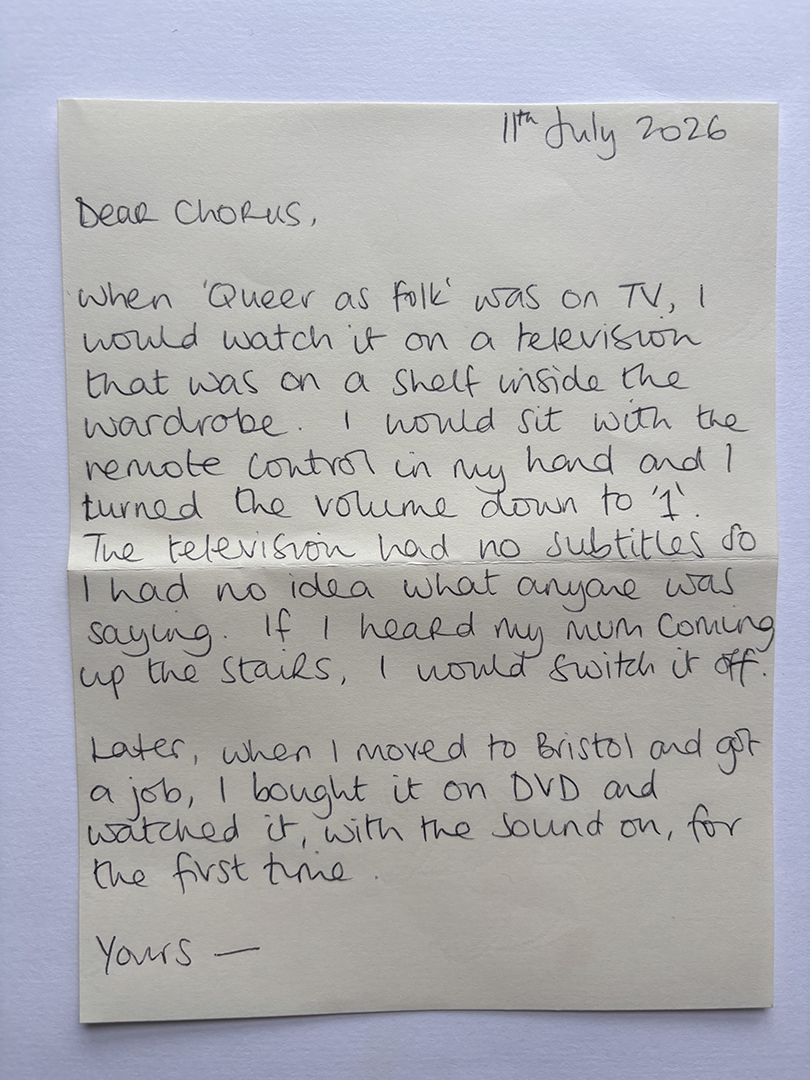 11th July 2026
Dear Chorus,
When 'Queer as Folk' was on TV, I
would watch it on a television
that was on a shelf inside the
wardrobe. I would sit with the
remote control in my hand and I
turned the volume down to '1'.
The television had no subtitles so
I had no idea what anyone was
saying. If I heard my mum coming
up the stairs, I would switch it off.
Later, when I moved to Bristol and got
a job, I bought it on DVD and
watched it, with the sound on, for
the first time.
Yours —